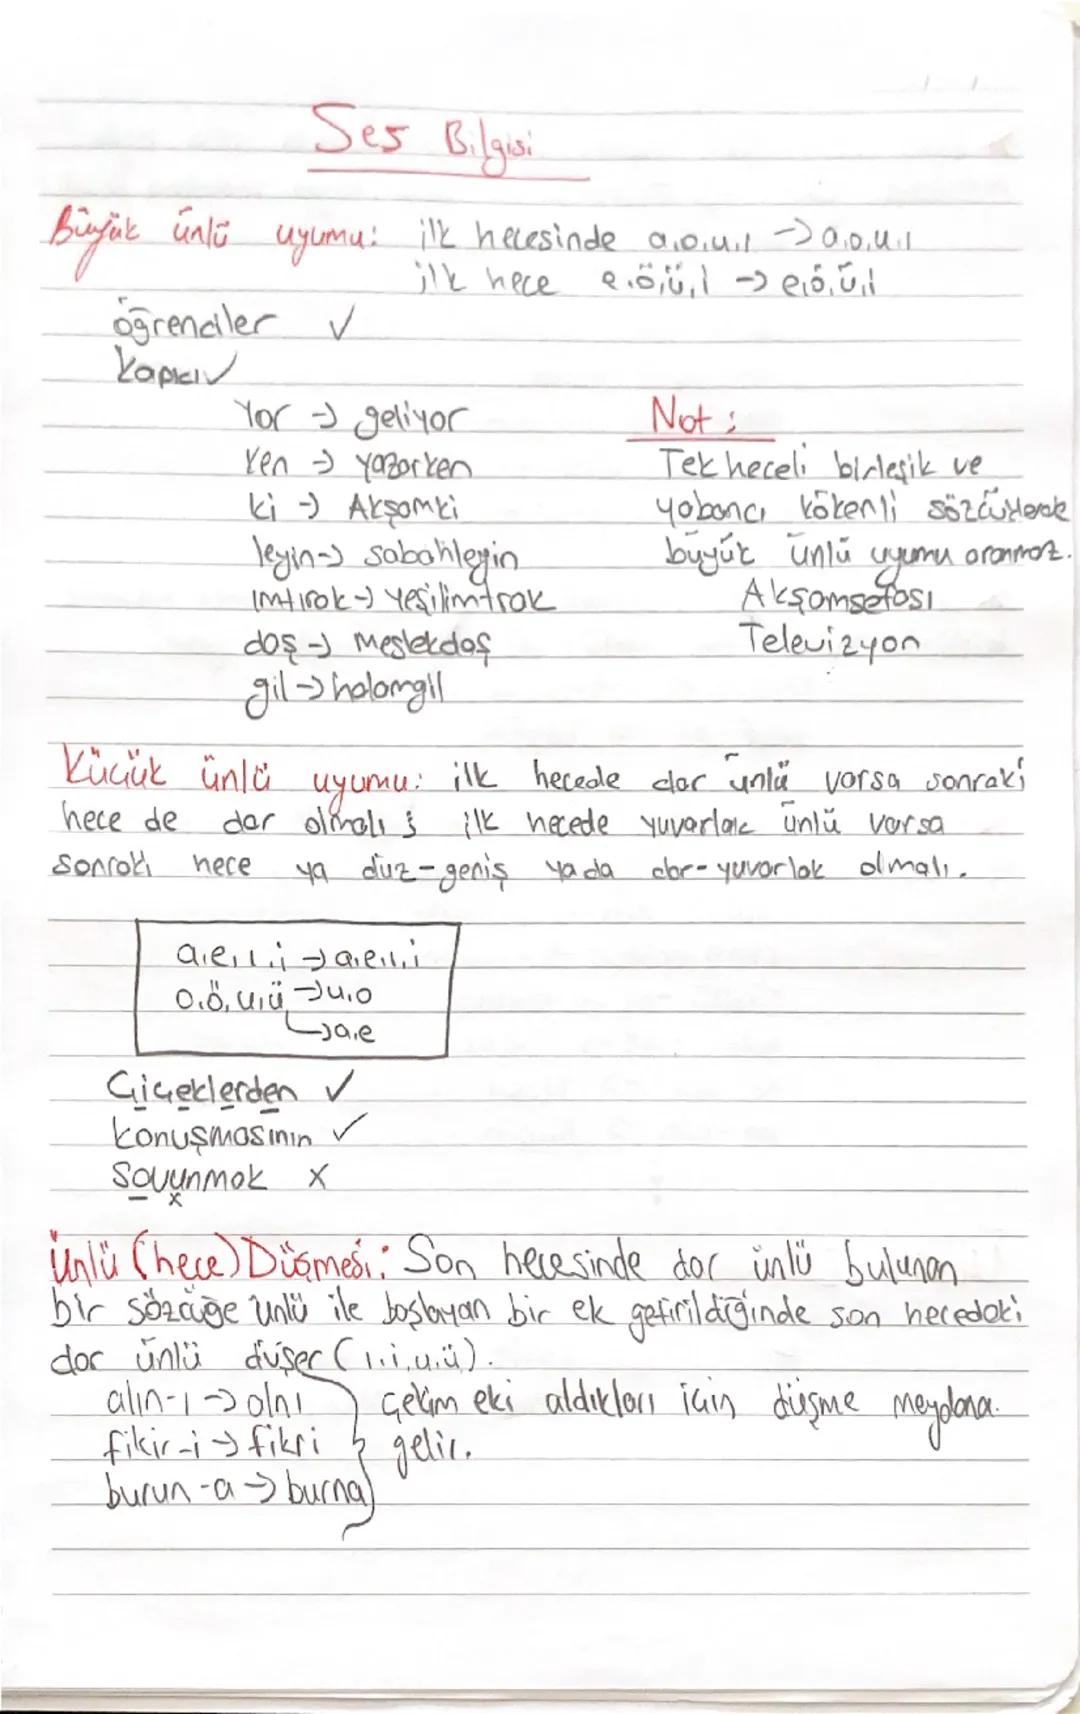 Ses Bilgisi
Büyük ünlü uyumu: ilk hecesinde a,o,u,ı → a,o,u,ı
ilk hece e,ö,ü,i → e,ö,ü,i
öğrenciler ✓
Kapıcı ✓
Yor → geliyor
Ken → yazarken
ki → Akşamki
leyin → sabahleyin
ımtırak → yeşilimtrak
daş → Meslekdaş
gil → halamgil
Not :
Tek heceli birleşik ve
yabancı kökenli sözcüklerde
büyük ünlü uyumu aranmaz.
Akşamsefası
Televizyon
Küçük ünlü uyumu: ilk hecede dar ünlü varsa sonraki
hece de dar olmalı ; ilk hecede yuvarlak ünlü varsa
sonraki hece ya düz-geniş ya da dar-yuvarlak olmalı.
a,e,ı,i → a,e,ı,i
o,ö,u,ü → u,o
→ a,e
Çiçeklerden ✓
Konuşmasının ✓
Savunmak x
x
Ünlü (hece) Düşmesi: Son hecesinde dar ünlü bulunan
bir sözcüğe ünlü ile başlayan bir ek getirildiğinde son hecedeki
dar ünlü düşer (ı,i,u,ü).
alın-ı → alnı
fikir-i → fikri
burun-a → burna
çekim eki aldıkları için düşme meydana
gelir.